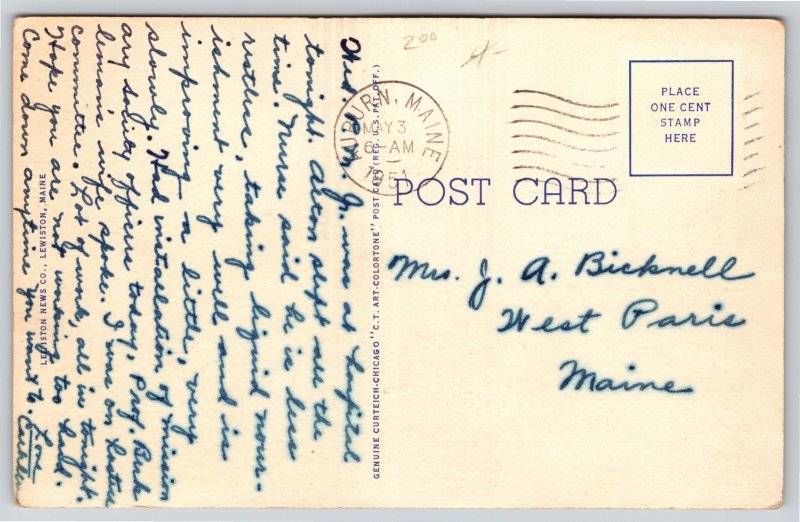 Wed. P.M. Jr. was at hospital
tonight. Arlon slept all the
time. Nurse said he is less
restless, taking liquid nour-
ishment very well and is
improving a little, very
slowly. Had installation of mission
ary society officers today, Prof. Berk
leman's wife spoke. I was on lunch
committee. Lot of work, all in tonight.
Hope you are not working too hard.
Come down anytime you want to. Love
LEWISTON NEWS CO., LEWISTON, MAINE
GENUINE CURTEICH-CHICAGO "C.T. ART-COLORTONE" POST CARD (REG. U.S. PAT. OFF.)
200
AUBURN, MAINE
MAY 3
6-AM
1951
PLACE
ONE CENT
STAMP
HERE
POST CARD
Mrs. J. A. Bicknell
West Paris
Maine